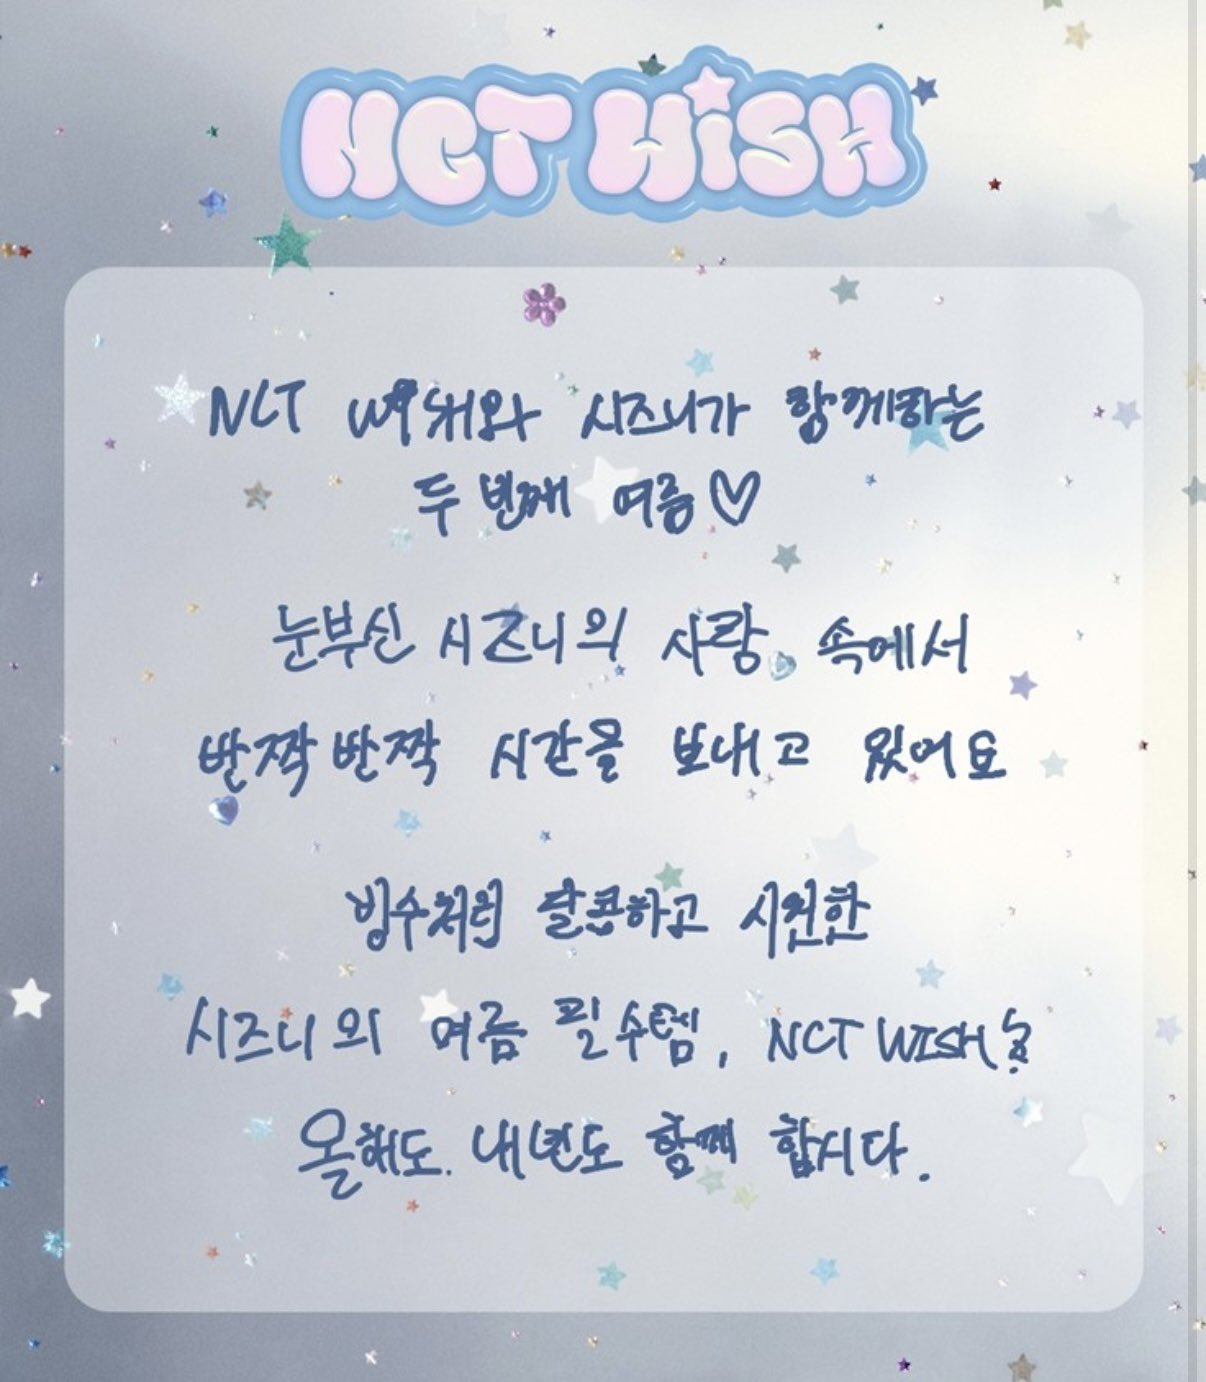 NCT WISH
NCT 위시와 시즈니가 함께하는
두 번째 여름♡
눈부신 시즈니의 사랑 속에서
반짝반짝 시간을 보내고 있어요
빙수처럼 달콤하고 시원한
시즈니의 여름 필수템, NCT WISH
올해도. 내년도 함께 합시다.